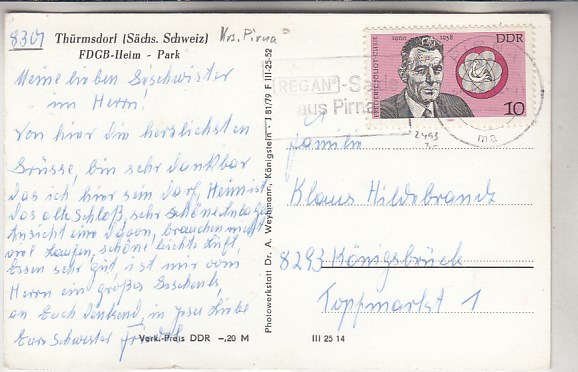 8301
Thürmsdorf (Sächs. Schweiz) Krs. Pirna
FDGB-Heim - Park
Meine lieben Geschwister
im Herrn!
Von hier die herzlichsten
Grüsse, bin sehr dankbar
das ich hier sein darf, Heim ist
das alte Schloß, sehr schöne Anlagen
Ansicht eine davon, brauchen nicht
viel Laufen, schöne leichte Luft,
Essen sehr gut, ist mir vom
Herrn ein großes Geschenk,
an Euch denkend, in Jesu Liebe
Eure Schwester
Verk.-Preis DDR -,20 M
III 25 14
Photowerkstatt Dr. A. Weyhmann, Königstein - J 81/79 F III-25-52
1900 1958
DDR
10
REGAN®-
aus Pirna
2493
Familie
Klaus Hildebrandt
8293 Königsbrück
Topfmarkt 1